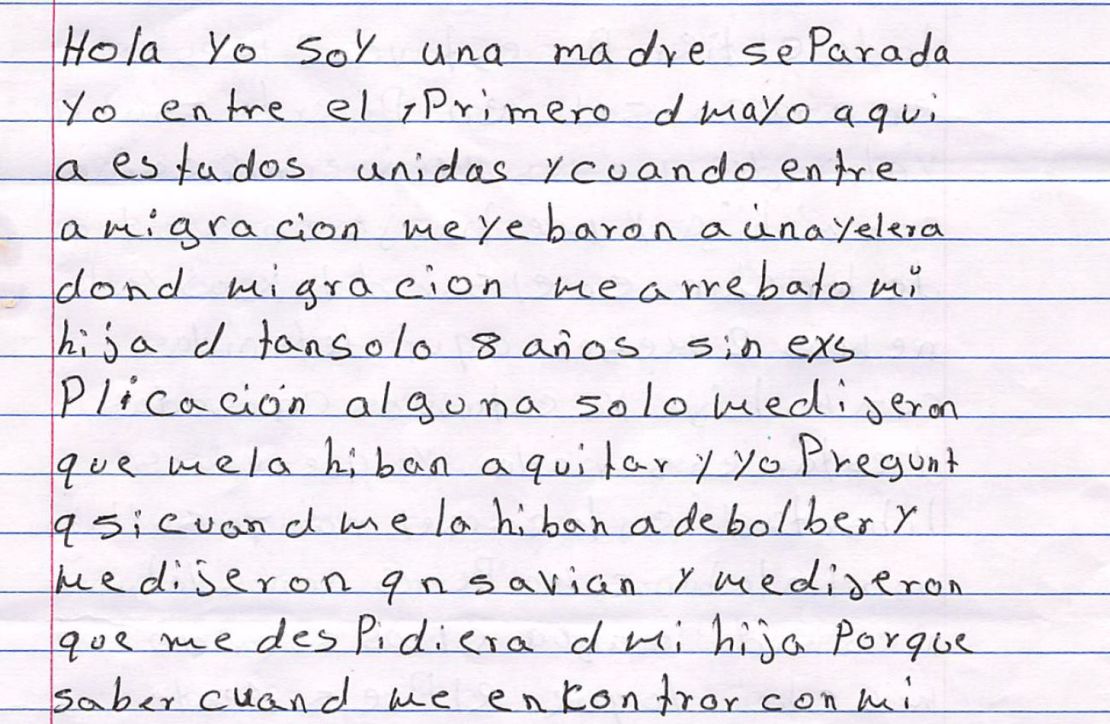 Hola Yo SoY una madre sePArada
Yo entre el, Primero d mayo aqui
a estudos unidas y cuando entre
a migracion me yebaron a una yelera
dond migracion me arrebato mi
hija d tansolo 8 años sin exs
Plicación alguna solo medijeron
que mela hiban aquitar y yo Pregunt
q si cuand me la hiban a debolber y
me dijeron qn savian y medijeron
que me des Pidiera d mi hija Porque
saber cuand me enkontrar con mi